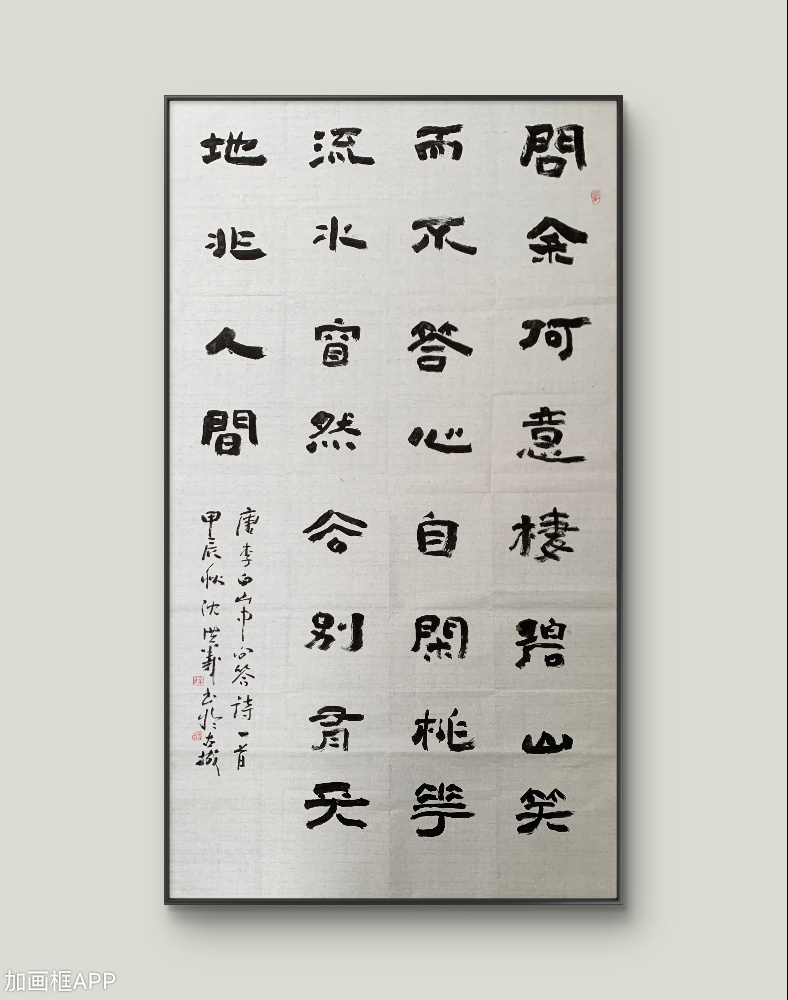 問余何意棲碧山笑
而不答心自閑桃華
流水窅然谷別有天
地非人間
唐李白山中问答詩一首
甲辰秋沈洪義书於古城
加画框APP